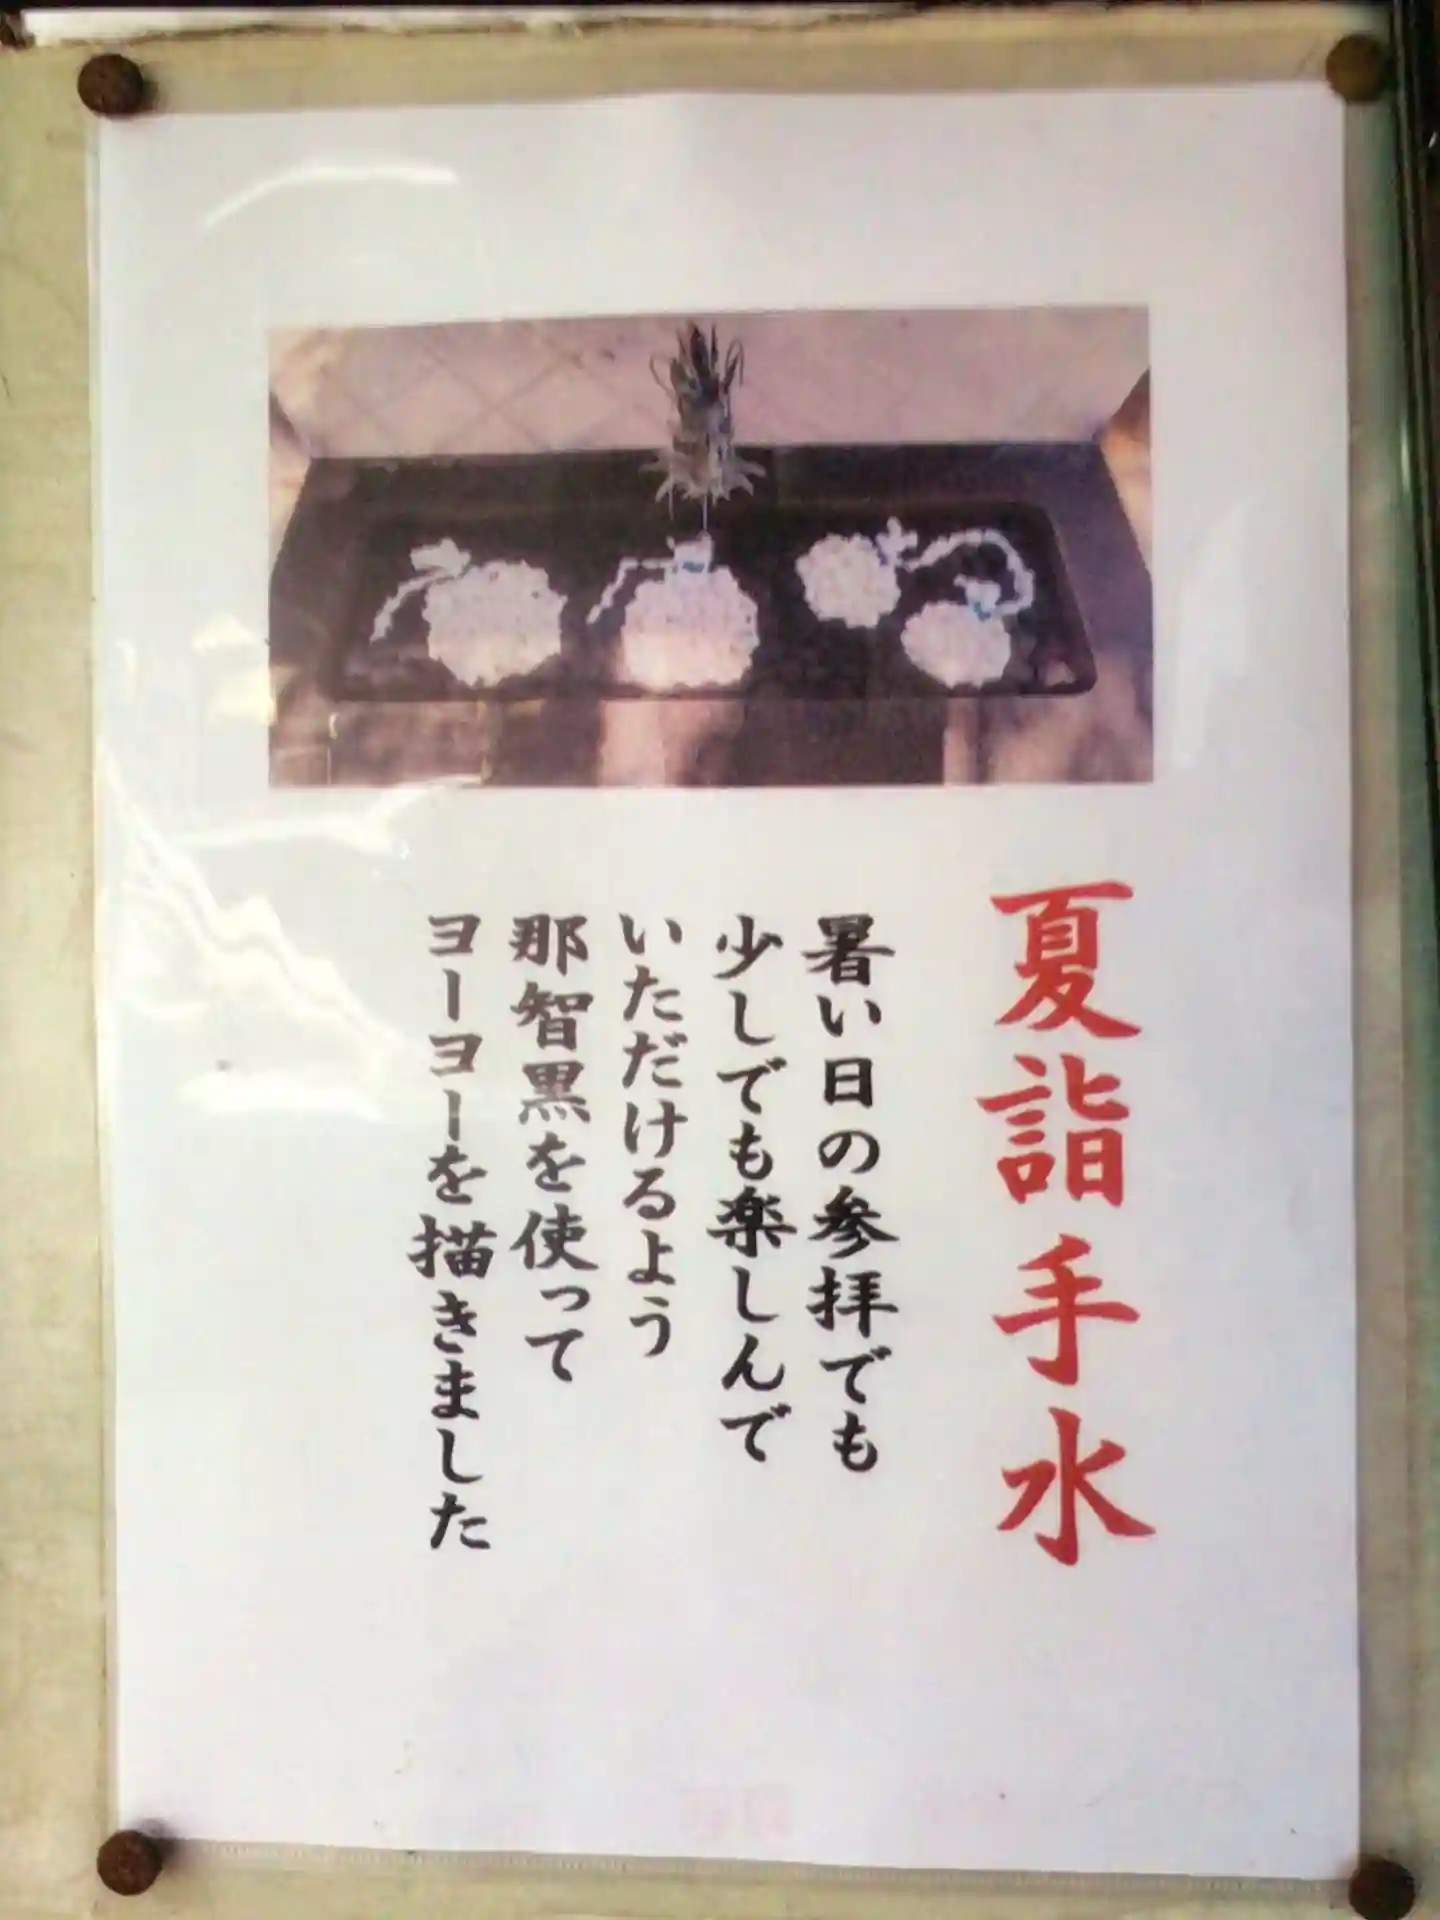 夏詣手水
暑い日の参拝でも
少しでも楽しんで
いただけるよう
那智黒を使って
ヨーヨーを描きました